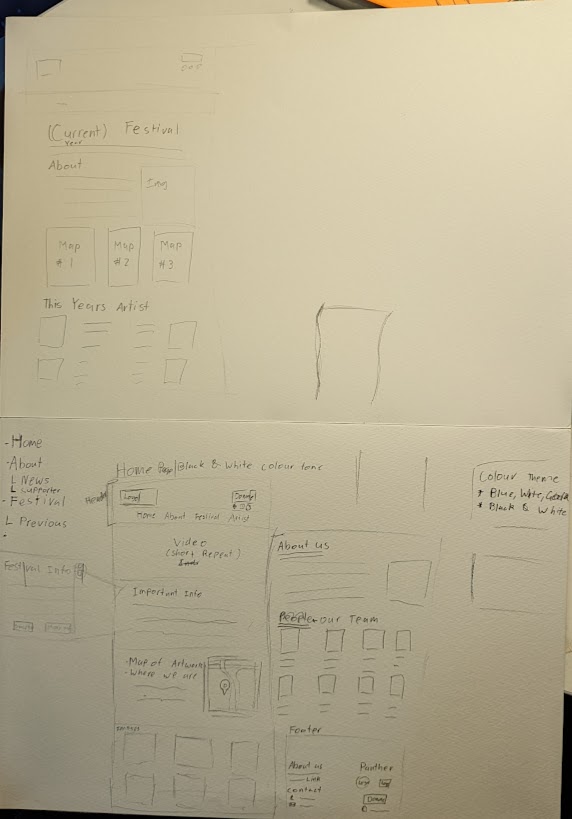 (Current) Festival
Year
About
Img
Map
#1
Map
#2
Map
#3
This Years Artist
- Home
- About
L News
L Supporter
- Festival
L Previous
Festival Info
Home Page Black & White Colour tone
Header
Home About Festival Artist
Video
(Short Repeat)
Important Info
- Map of Artwork
- Where we are
About us
People our Team
Footer
About us
Link
Contact
Panther
Logo
Colour Theme
* Blue, White,
* Black & White